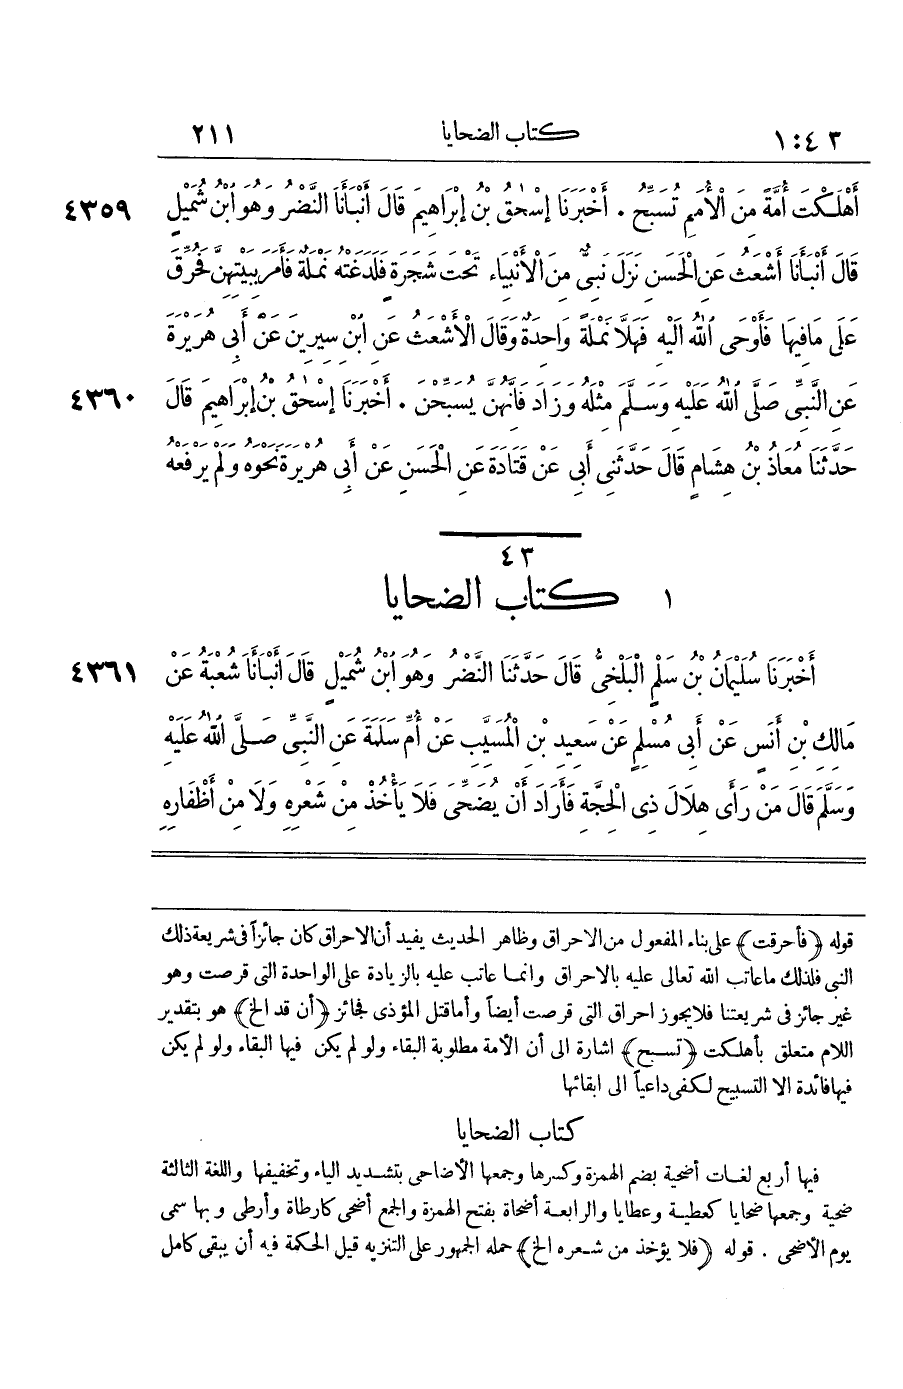 ١ : ٤٣ كتاب الضحايا ٢١١
أَهْلَكْتَ أُمَّةً مِنَ الْأُمَمِ تُسَبِّحُ . أَخْبَرَنَا إِسْحٰقُ بْنُ إِبْرَاهِيمَ قَالَ أَنْبَأَنَا النَّضْرُ وَهُوَ ابْنُ شُمَيْلٍ ٤٣٥٩
قَالَ أَنْبَأَنَا أَشْعَثُ عَنِ الْحَسَنِ نَزَلَ نَبِىٌّ مِنَ الْأَنْبِيَاءِ تَحْتَ شَجَرَةٍ فَلَدَغَتْهُ نَمْلَةٌ فَأَمَرَ بِبَيْتِهِنَّ فَحُرِّقَ
عَلَى مَا فِيهَا فَأَوْحَى اللهُ اِلَيْهِ فَهَلَّا نَمْلَةً وَاحِدَةً وَقَالَ الْأَشْعَثُ عَنِ ابْنِ سِيرِينَ عَنْ أَبِى هُرَيْرَةَ
عَنِ النَّبِىِّ صَلَّى اللهُ عَلَيْهِ وَسَلَّمَ مِثْلَهُ وَزَادَ فَاِنَّهُنَّ يُسَبِّحْنَ . أَخْبَرَنَا إِسْحٰقُ بْنُ إِبْرَاهِيمَ قَالَ ٤٣٦٠
حَدَّثَنَا مُعَاذُ بْنُ هِشَامٍ قَالَ حَدَّثَنِى أَبِى عَنْ قَتَادَةَ عَنِ الْحَسَنِ عَنْ أَبِى هُرَيْرَةَ نَحْوَهُ وَلَمْ يَرْفَعْهُ
٤٣
١ كتاب الضحايا
أَخْبَرَنَا سُلَيْمَانُ بْنُ سَلْمٍ الْبَلْخِىُّ قَالَ حَدَّثَنَا النَّضْرُ وَهُوَ ابْنُ شُمَيْلٍ قَالَ أَنْبَأَنَا شُعْبَةُ عَنْ ٤٣٦١
مَالِكِ بْنِ أَنَسٍ عَنْ أَبِى مُسْلِمٍ عَنْ سَعِيدِ بْنِ الْمُسَيَّبِ عَنْ أُمِّ سَلَمَةَ عَنِ النَّبِىِّ صَلَّى اللهُ عَلَيْهِ
وَسَلَّمَ قَالَ مَنْ رَأَى هِلَالَ ذِى الْحِجَّةِ فَأَرَادَ أَنْ يُضَحِّىَ فَلَا يَأْخُذْ مِنْ شَعْرِهِ وَلَا مِنْ أَظْفَارِهِ
قوله ﴿فأحرقت﴾ على بناء المفعول من الاحراق وظاهر الحديث يفيد أن الاحراق كان جائزاً فى شريعة ذلك
النبى فلذلك ما عاتب الله تعالى عليه بالاحراق وانما عاتب عليه بالزيادة على الواحدة التى قرصت وهو
غير جائز فى شريعتنا فلا يجوز احراق التى قرصت أيضاً وأما قتل المؤذى فجائز ﴿أن قد الخ﴾ هو بتقدير
اللام متعلق بأهلكت ﴿تسبح﴾ اشارة الى أن الأمة مطلوبة البقاء ولو لم يكن فيها البقاء ولو لم يكن
فيها فائدة الا التسبيح لكفى داعياً الى ابقائها
كتاب الضحايا
فيها أربع لغات أضحية بضم الهمزة وكسرها وجمعها الأضاحى بتشديد الياء وتخفيفها واللغة الثالثة
ضحية وجمعها ضحايا كعطية وعطايا والرابعة أضحاة بفتح الهمزة والجمع أضحى كارطاة وأرطى وبها سمى
يوم الأضحى . قوله ﴿فلا يؤخذ من شعره الخ﴾ حمله الجمهور على التنزيه قيل الحكمة فيه أن يبقى كامل